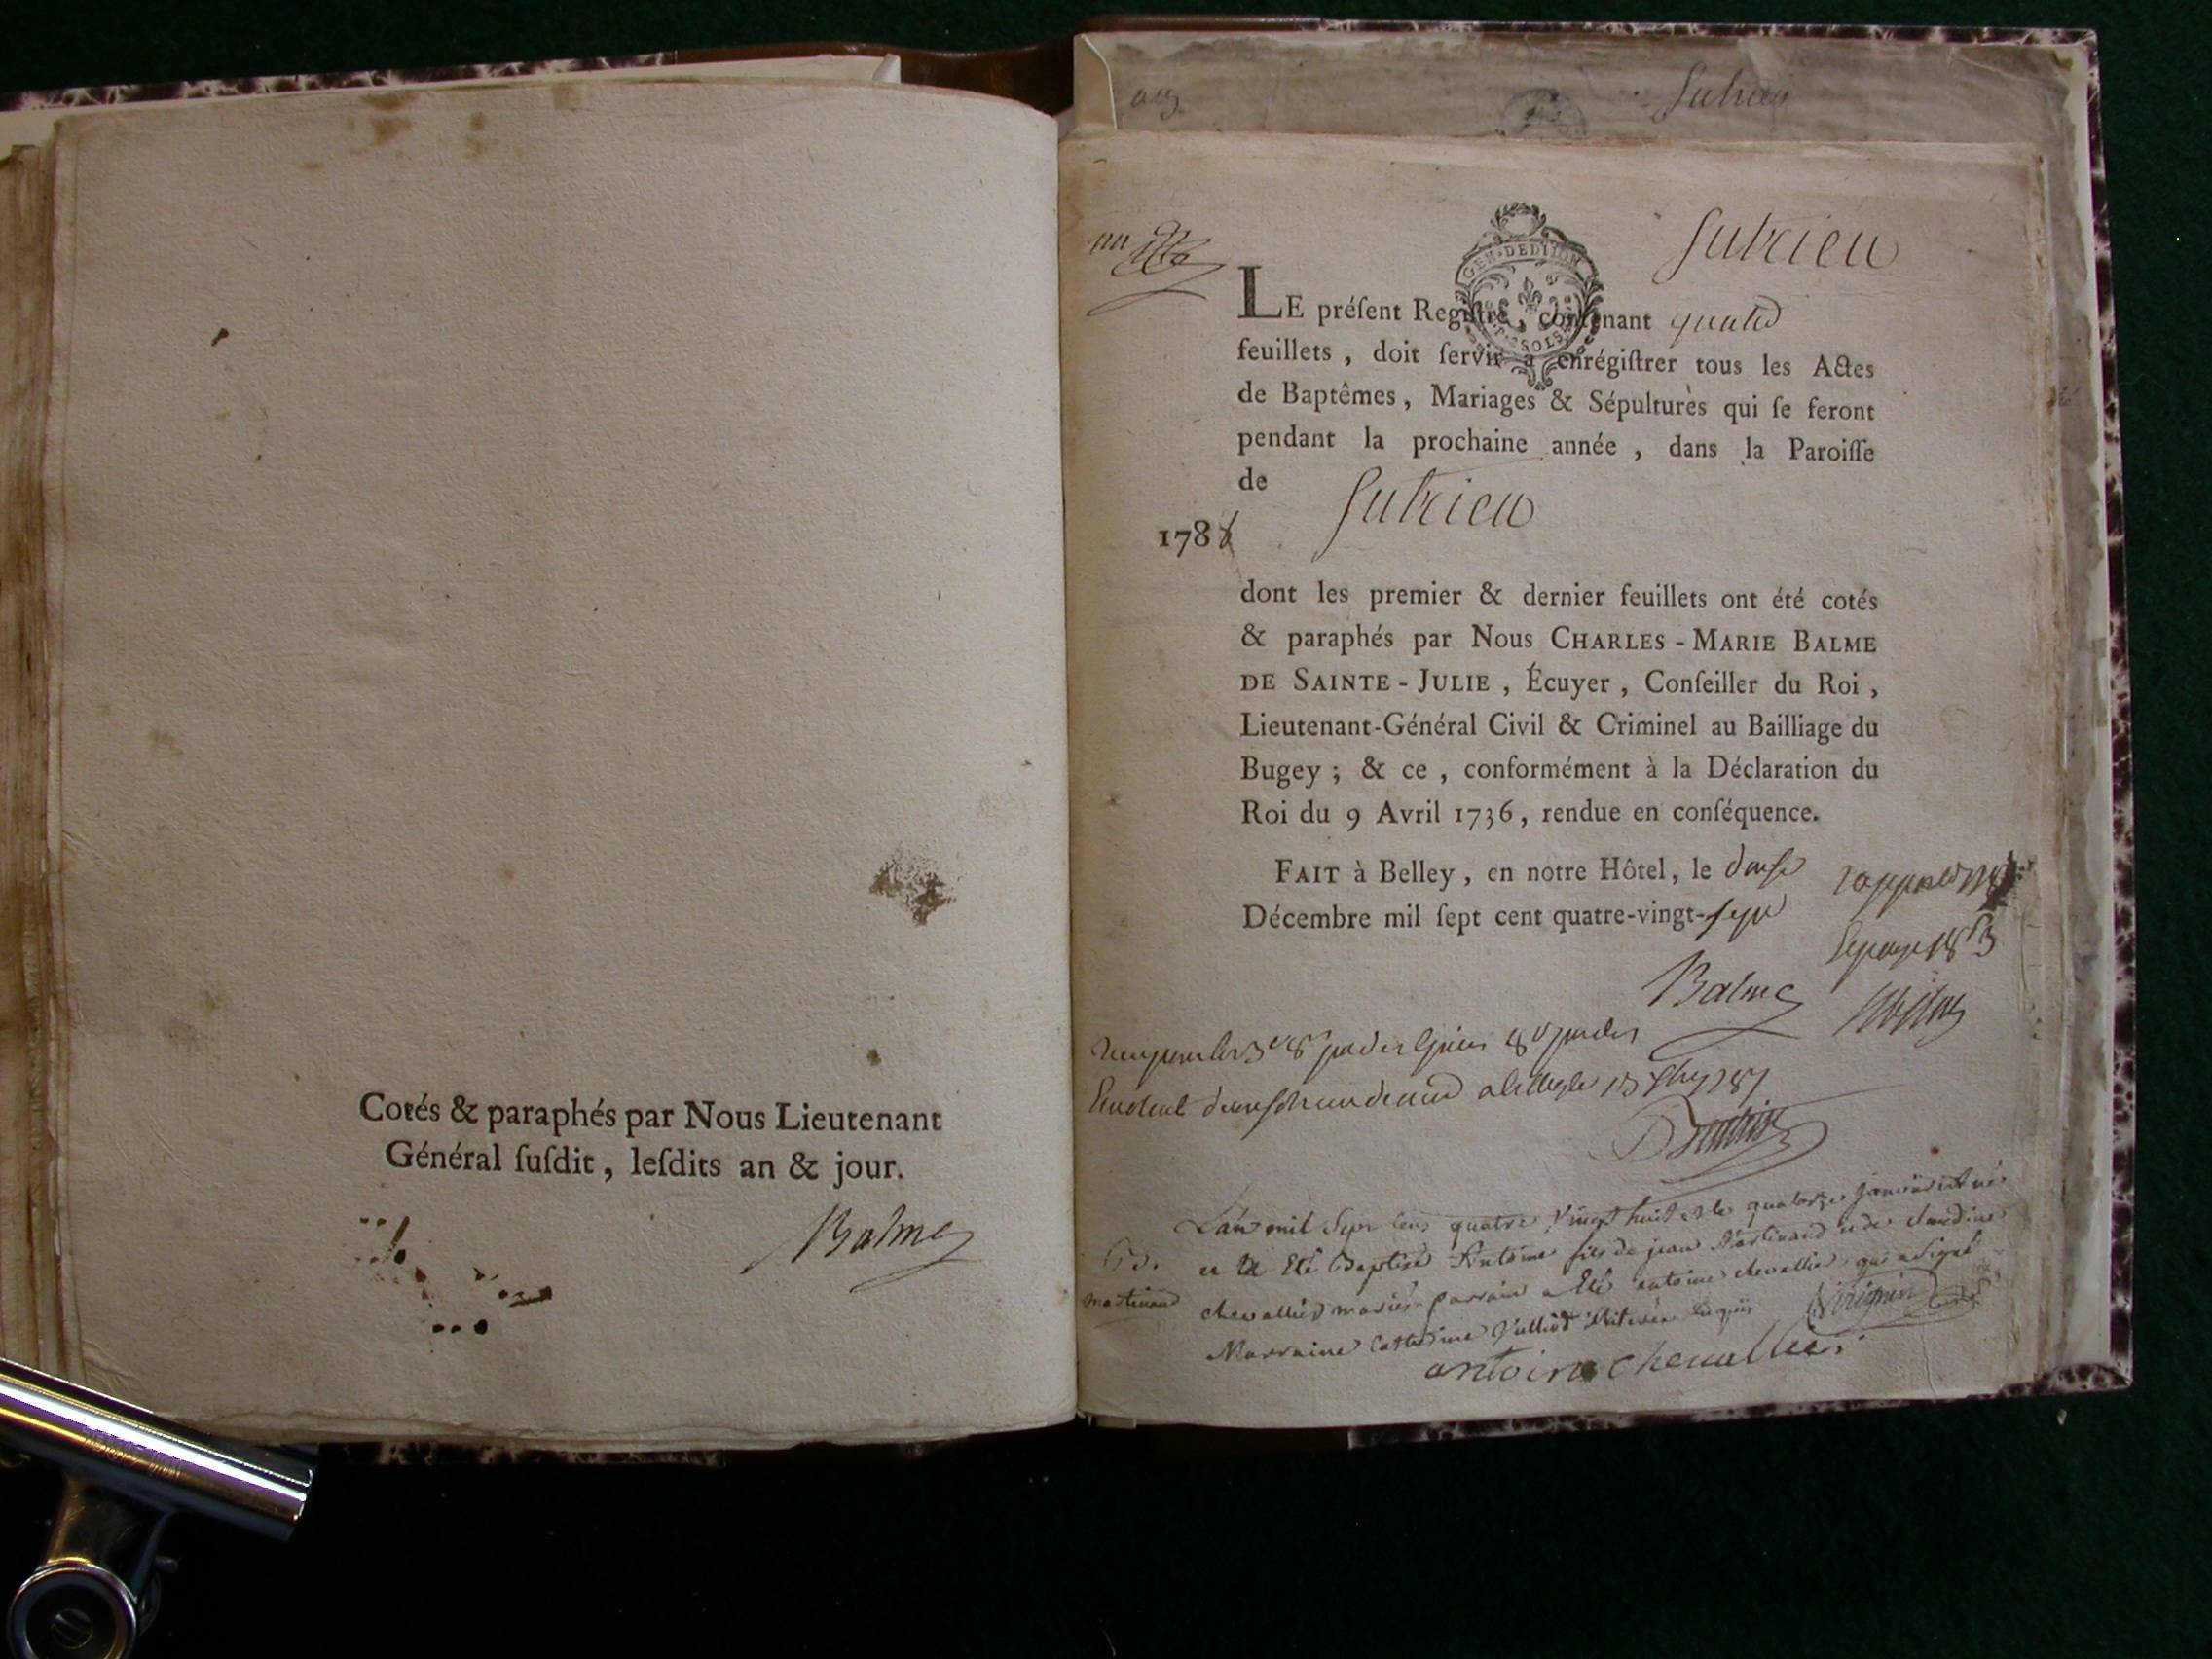 Cotés & paraphés par Nous Lieutenant
Général ſuſdit, leſdits an & jour.
Balme
Sutrieu
GEN. DE DIJON
SOLS
Sutrieu
LE préſent Regiſtre, contenant quatre
feuillets, doit ſervir à enrégiſtrer tous les Actes
de Baptêmes, Mariages & Sépultures qui ſe feront
pendant la prochaine année, dans la Paroiſſe
de Sutrieu
1788
dont les premier & dernier feuillets ont été cotés
& paraphés par Nous CHARLES-MARIE BALME
DE SAINTE-JULIE, Écuyer, Conſeiller du Roi,
Lieutenant-Général Civil & Criminel au Bailliage du
Bugey; & ce, conformément à la Déclaration du
Roi du 9 Avril 1736, rendue en conſéquence.
FAIT à Belley, en notre Hôtel, le douze
Décembre mil ſept cent quatre-vingt-sept
Balme
L'an mil sept cens quatre vingt huit et le quatorze janvier est né
et a Eté Baptisé Antoine fils de jean Martinand et de Claudine
B.
martinand
chevallier mariés parrain a Eté antoine chevallier qui a signé
Marraine Catherine
antoine chevallier